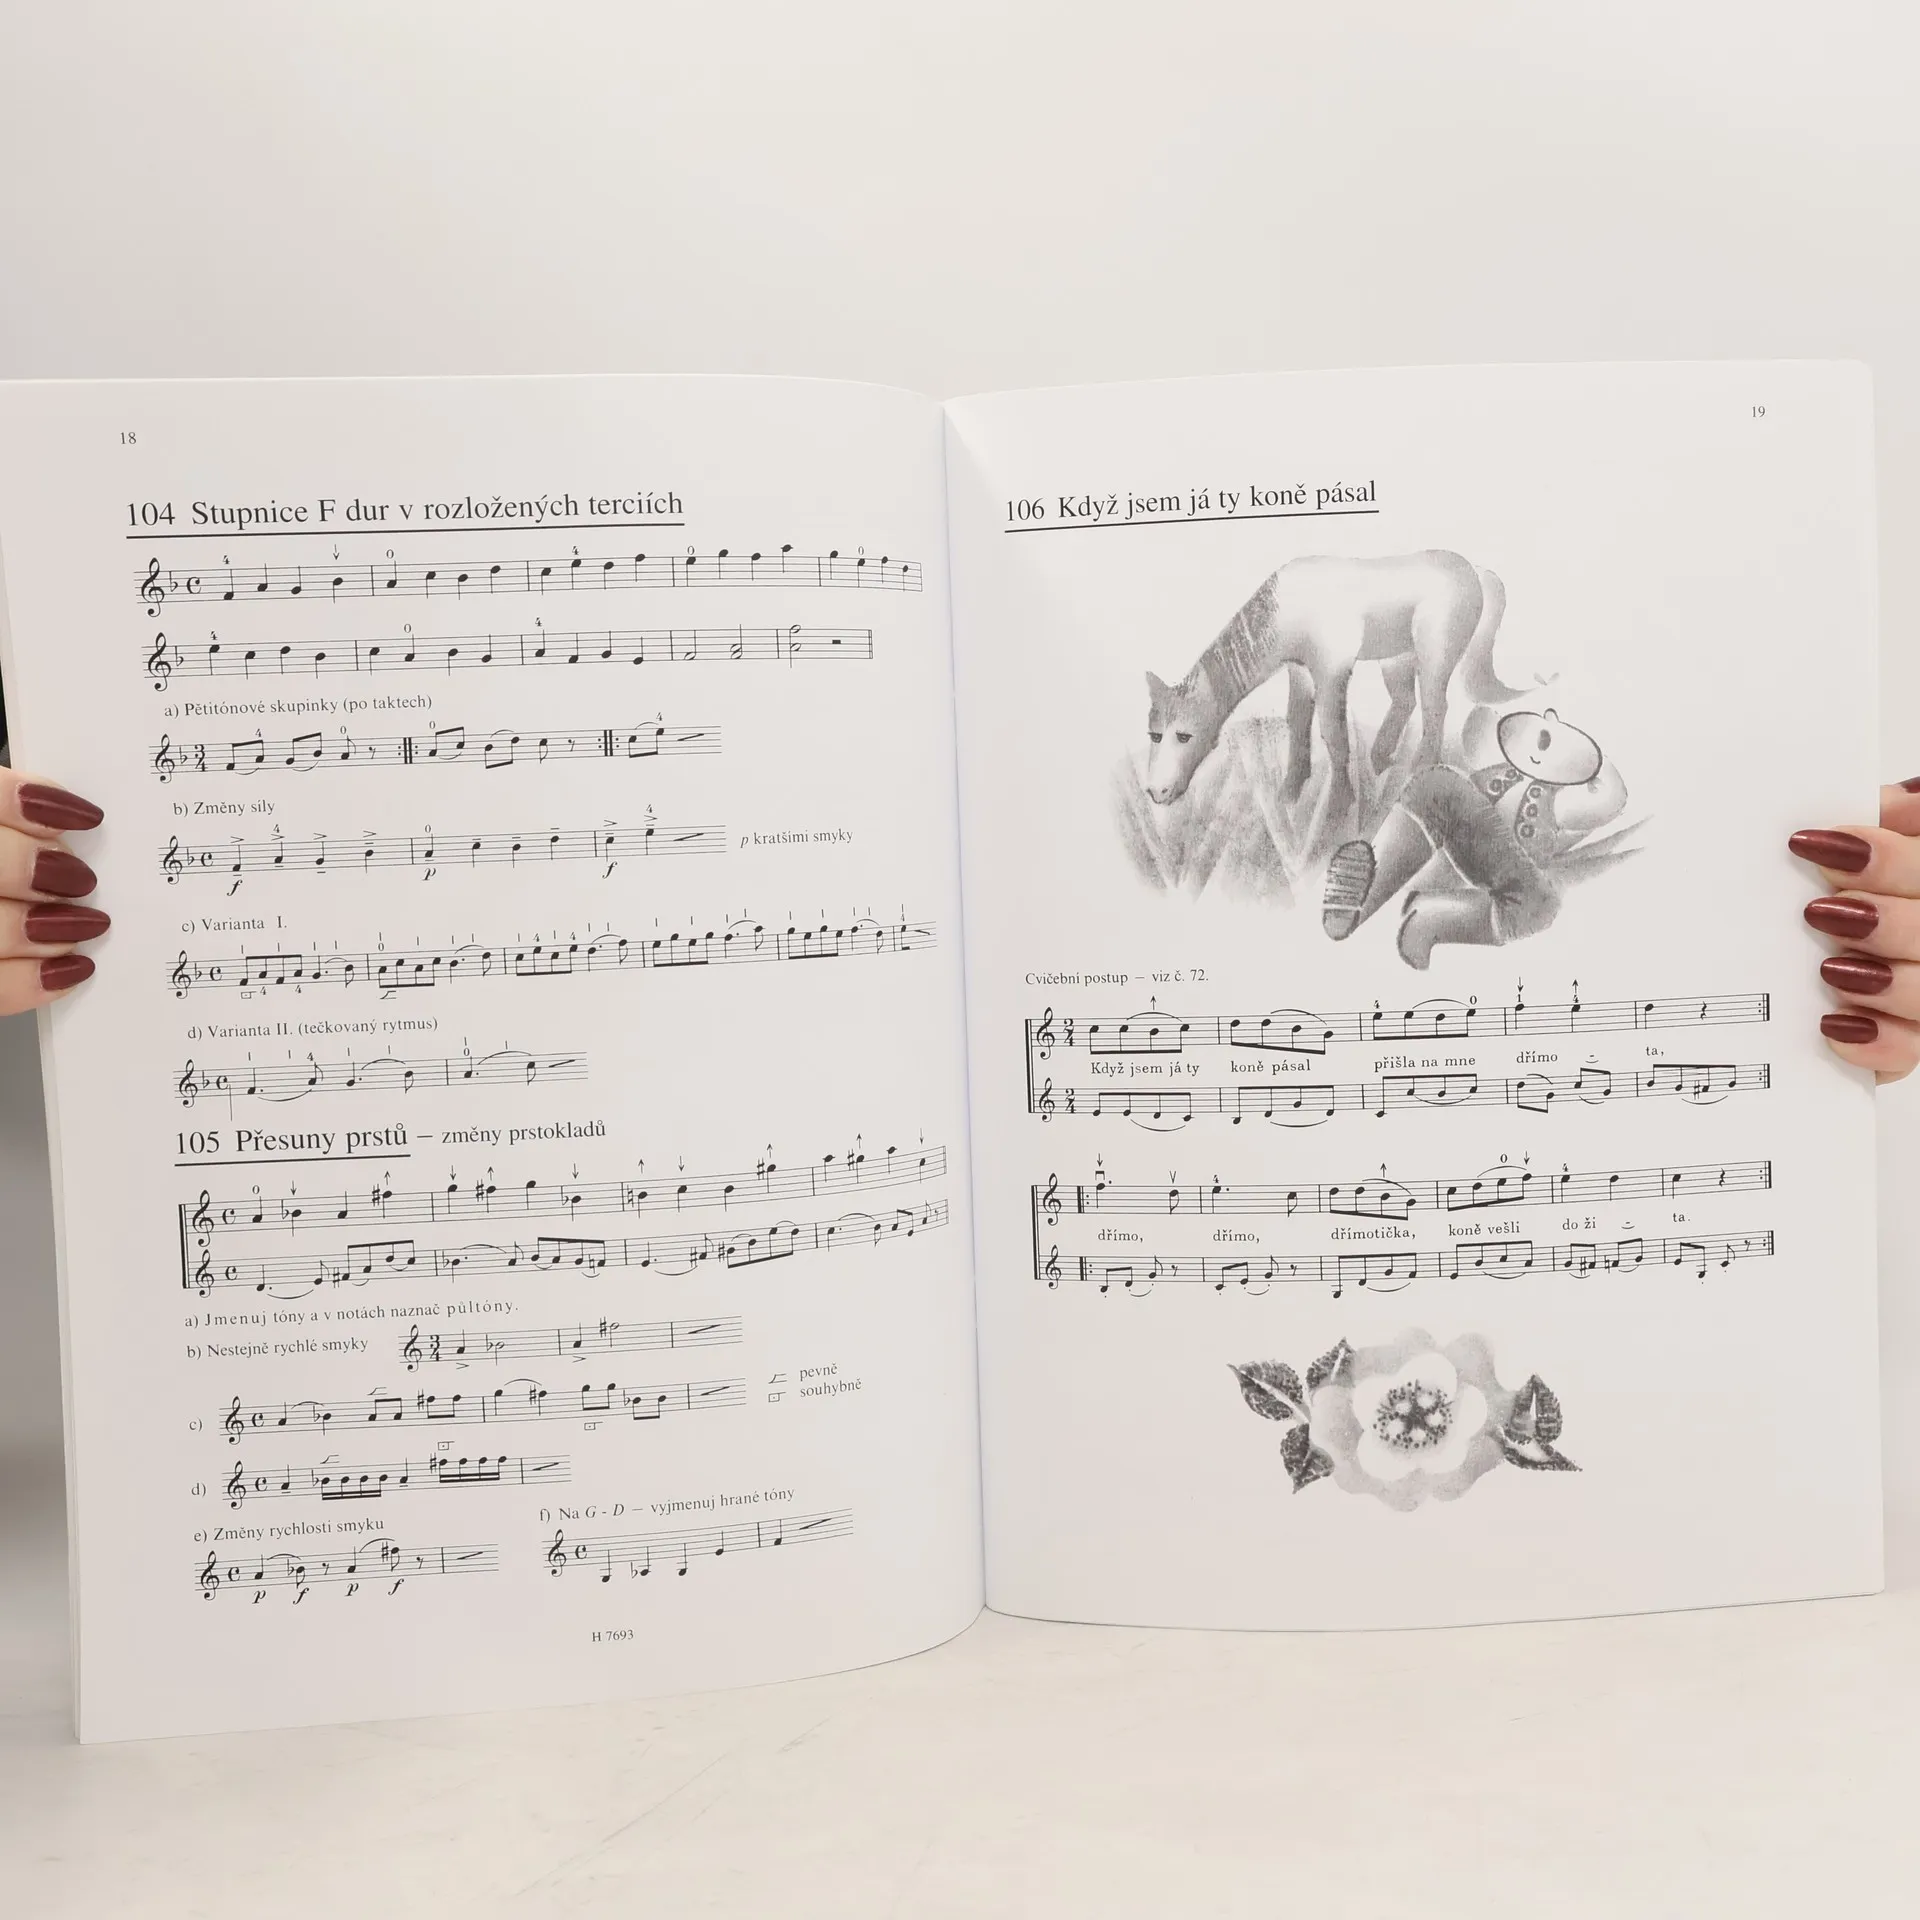 18
104 Stupnice F dur v rozložených terciích
4 0 4 0 0
4 0 4
a) Pětitónové skupinky (po taktech)
3 4 4 0 0 4
b) Změny síly
4 0 4
f p f
p kratšími smyky
c) Varianta I.
0 4 4 4
4 4
d) Varianta II. (tečkovaný rytmus)
4 0
105 Přesuny prstů – změny prstokladů
0
a) Jmenuj tóny a v notách naznač půltóny.
b) Nestejně rychlé smyky
3 4
pevně
souhybně
c)
d)
e) Změny rychlosti smyku
p f p f
f) Na G - D – vyjmenuj hrané tóny
H 7693
19
106 Když jsem já ty koně pásal
Cvičební postup – viz č. 72.
4 0 1 4
2 4
Když jsem já ty koně pásal přišla na mne dřímo - ta,
2 4
4 0 4
dřímo, dřímo, dřímotička, koně vešli do ži - ta.